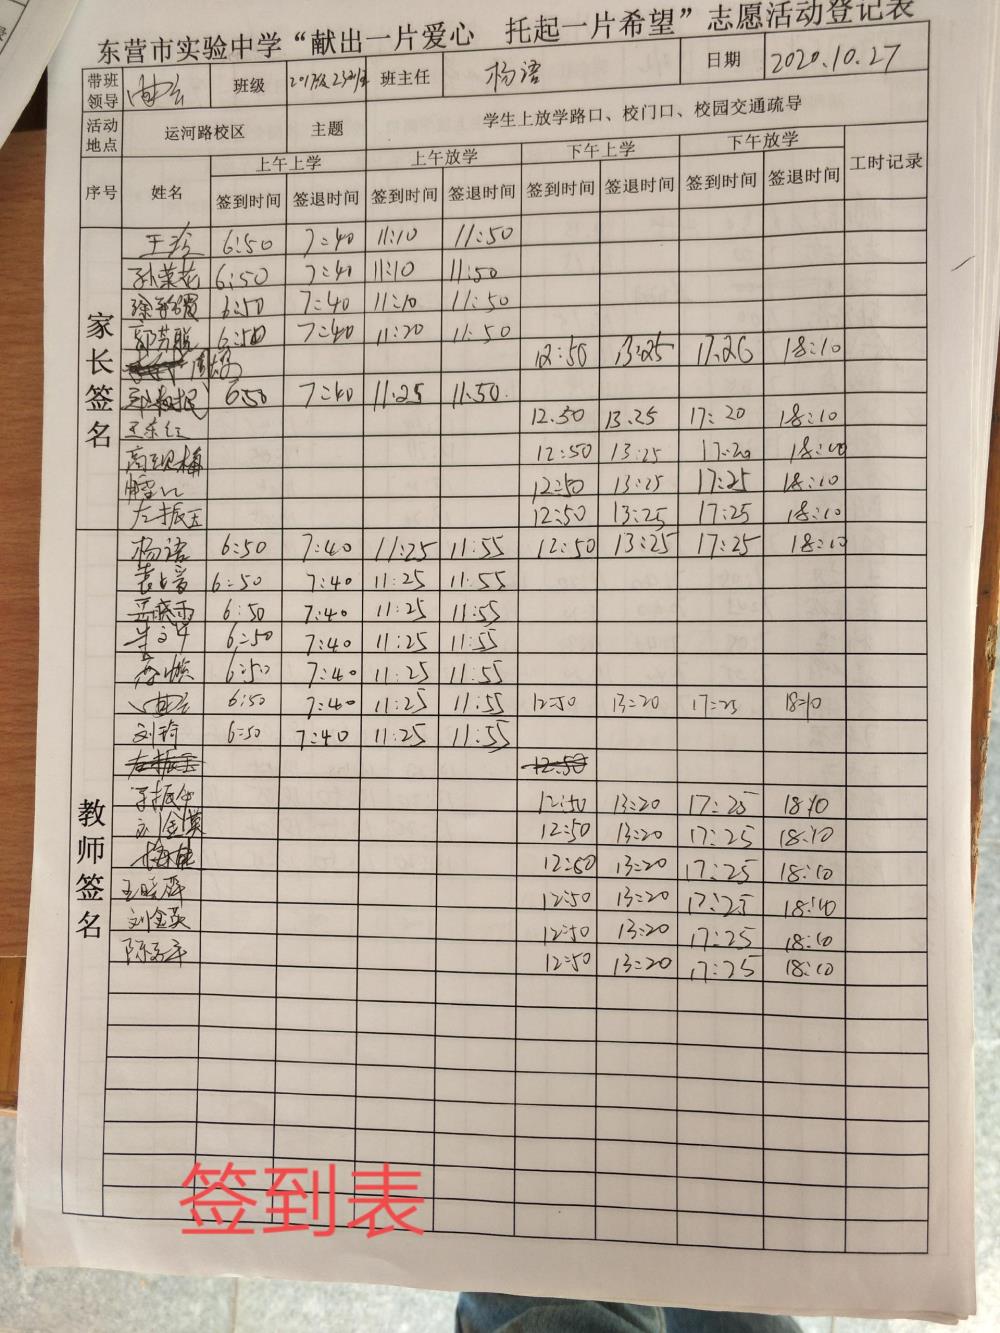 东营市实验中学“献出一片爱心 托起一片希望”志愿活动登记表
带班领导 班级 2017级 班主任 杨语 日期 2020.10.27
活动地点 运河路校区 主题 学生上放学路口、校门口、校园交通疏导
序号 姓名 上午上学 上午放学 下午上学 下午放学 工时记录
签到时间 签退时间 签到时间 签退时间 签到时间 签退时间 签到时间 签退时间
家长签名
王玲 6:50 7:40 11:10 11:50
孙荣花 6:50 7:40 11:10 11:50
6:50 7:40 11:10 11:50
6:50 7:40 11:20 11:50
12:50 13:25 17:26 18:10
6:50 7:40 11:25 11:50
王东红 12:50 13:25 17:20 18:10
高现梅 12:50 13:25 17:20 18:00
12:50 13:25 17:25 18:10
左振玉 12:50 13:25 17:25 18:10
教师签名
杨语 6:50 7:40 11:25 11:55 12:50 13:25 17:25 18:10
6:50 7:40 11:25 11:55
6:50 7:40 11:25 11:55
6:50 7:40 11:25 11:55
6:50 7:40 11:25 11:55
6:50 7:40 11:25 11:55 12:50 13:20 17:25 18:10
刘玲 6:50 7:40 11:25 11:55
左振玉 12:50
12:50 13:20 17:25 18:10
12:50 13:20 17:25 18:10
12:50 13:20 17:25 18:10
王晓萍 12:50 13:20 17:25 18:10
刘金英 12:50 13:20 17:25 18:10
12:50 13:20 17:25 18:10
签到表